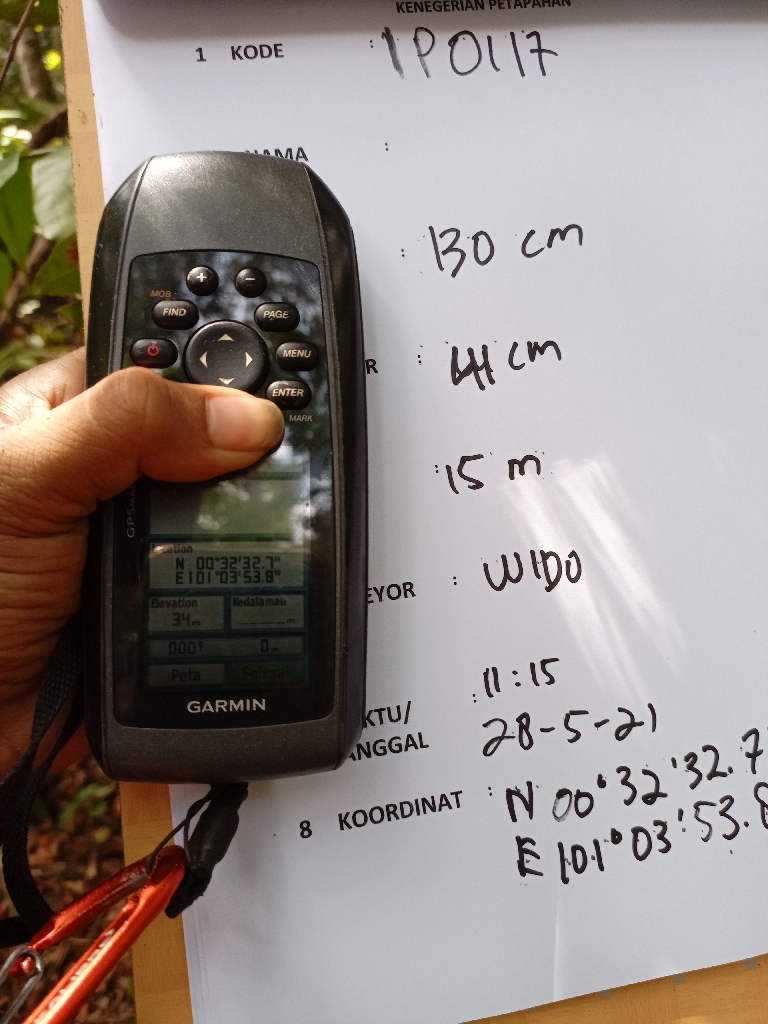 KENEGERIAN PETAPAHAN
1 KODE : IP0117
NAMA :
: 130 cm
R : 44 cm
: 15 m
EYOR : WIDO
KTU/ : 11:15
ANGGAL 28-5-21
8 KOORDINAT : N 00°32'32.7
E 101°03'53.8
+ -
MOB
FIND PAGE
MENU
ENTER
MARK
GPS
N 00°32'32.7"
E101°03'53.8"
Elevation Kedalaman
34m _____m
000° 0m
Peta Selesai
GARMIN